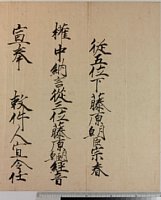 從五位下藤原朝臣宗春
權中納言從三位藤原朝臣経音
宣奉 敕件人宜令任